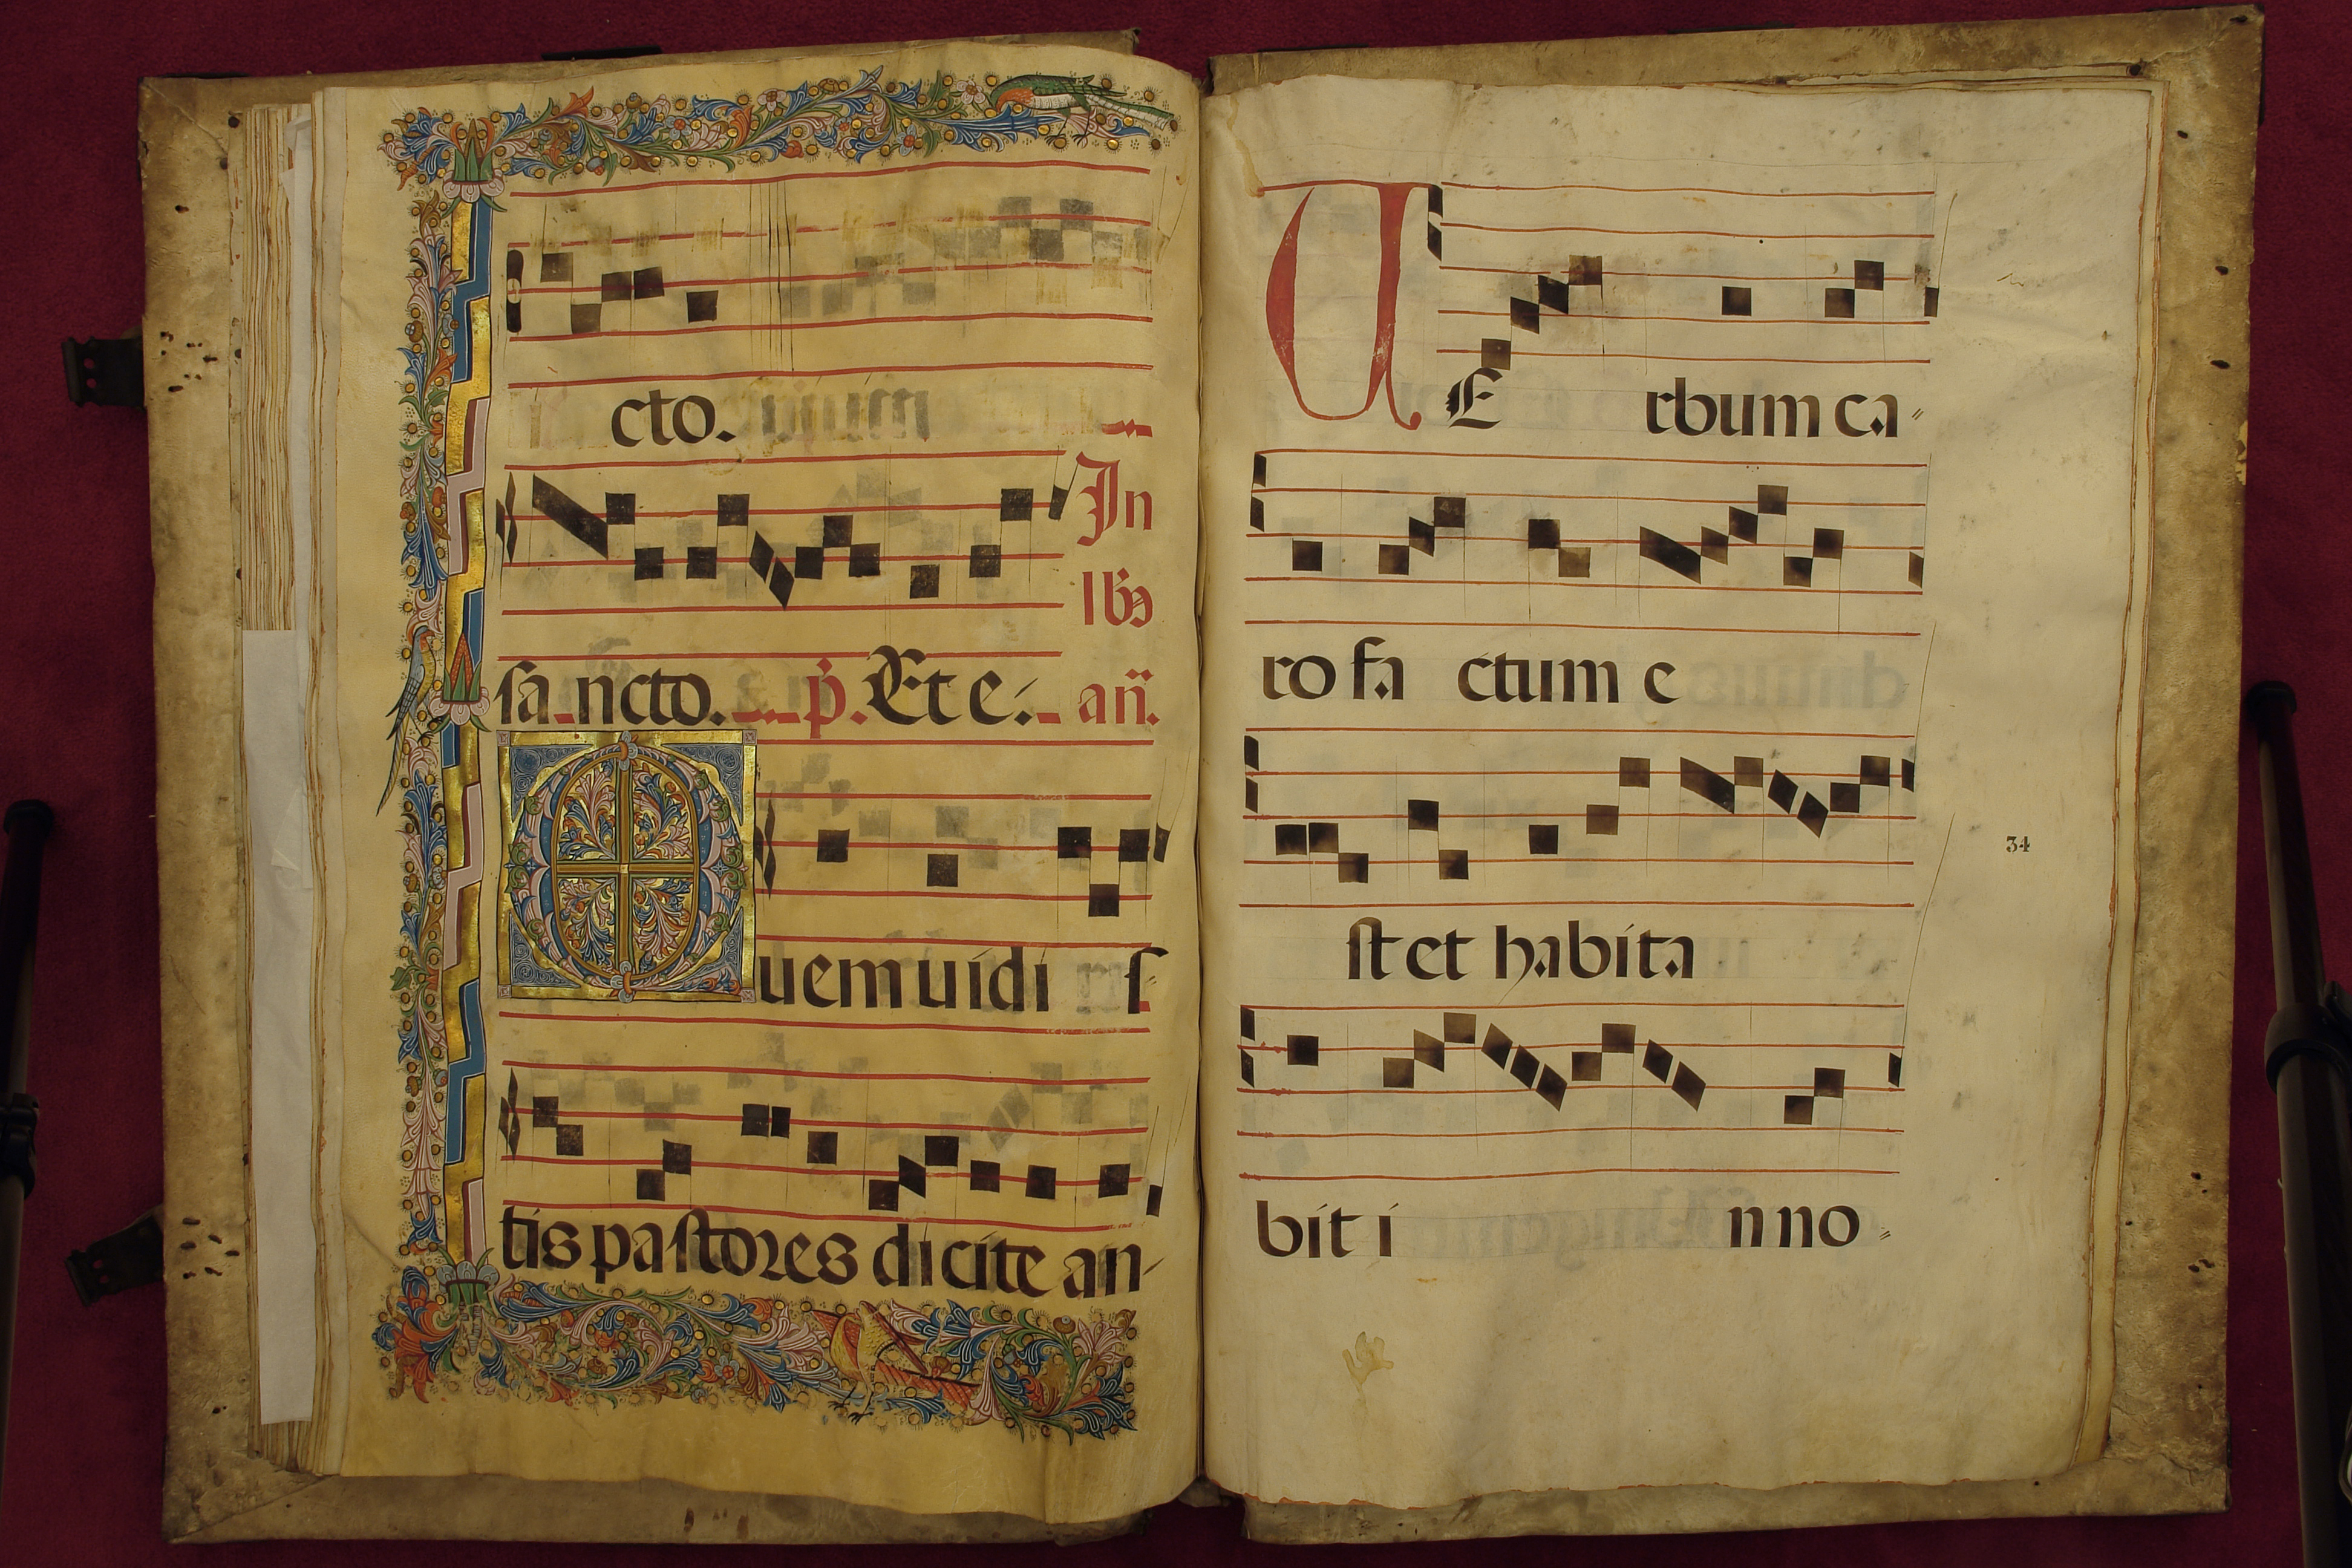 cto.
In
lbȝ
sa ncto. p̄. Et e. an̄.
Quem uidi s
tis pastores dicite an-
VE rbum ca
ro fa ctum e
st et habita
34
bit i n no